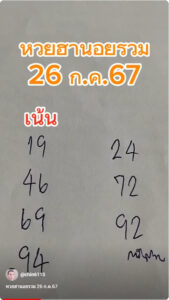 หวยฮานอยรวม
26 ก.ค.67
เน้น
19 24
46 72
69 92
94
หวยฮานอยรวม 26 ก.ค.67